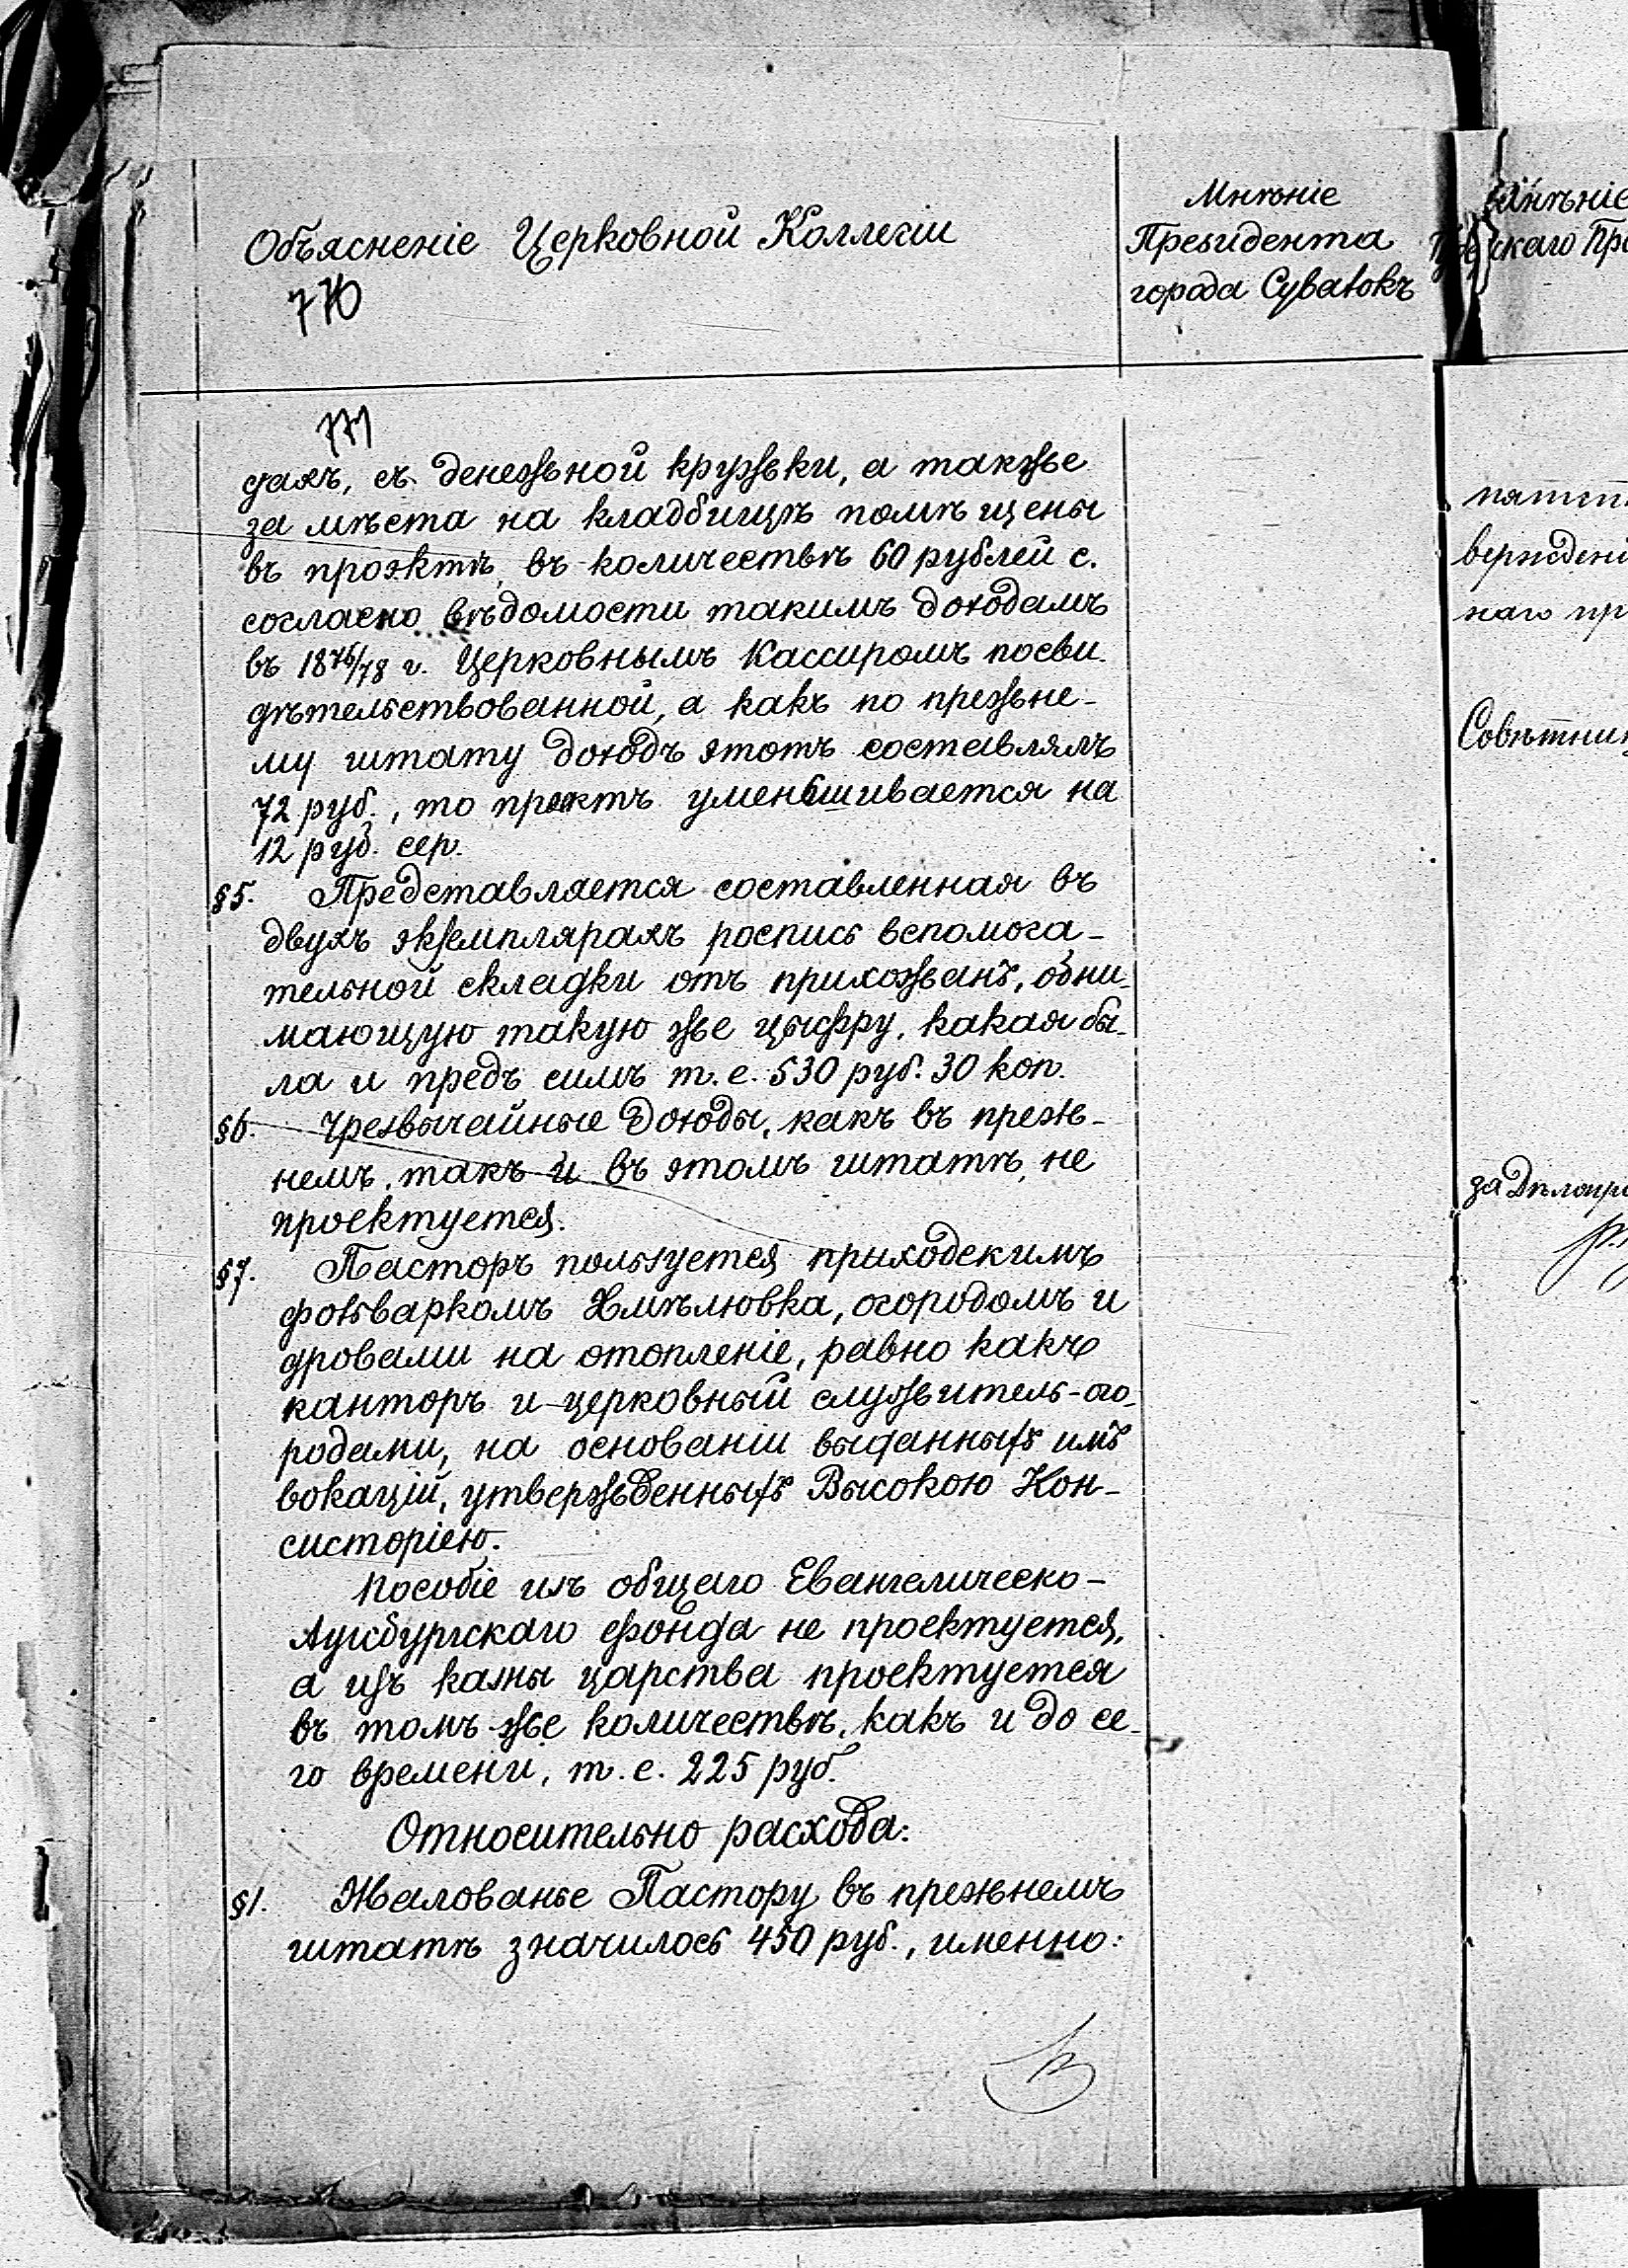 Объясненіе Церковной Коллегіи
770
Мнѣніе
Президента
города Сувалокъ
Мнѣніе
скаго Пр
771
дахъ, съ денежной кружки, а также
за мѣста на кладбищѣ помѣщены
въ проэктѣ, въ количествѣ 60 рублей с.
согласно вѣдомости такимъ доходамъ
въ 1876/78 г. Церковнымъ Кассиромъ посви-
дѣтельствованной, а какъ по прежне-
му штату доходъ этотъ составлялъ
72 руб., то проектъ уменьшивается на
12 руб. сер.
§5. Представляется составленная въ
двухъ экземплярахъ роспись вспомога-
тельной складки отъ прихожанъ, обни-
мающую такую же цыфру, какая бы-
ла и предъ симъ т. е. 530 руб. 30 коп.
§6. Чрезвычайные доходы, какъ въ преж-
немъ, такъ и въ этомъ штатѣ, не
проектуется.
§7. Пасторъ пользуется приходскимъ
фольваркомъ Хмѣлювка, огородомъ и
дровами на отопленіе, равно какъ
канторъ и церковный служитель-ого-
родами, на основаніи выданныхъ имъ
вокацій, утвержденныхъ Высокою Кон-
систоріею.
Пособіе изъ общаго Евангелическо-
Аугсбургскаго фонда не проектуется,
а изъ казны царства проектуется
въ томъ-же количествѣ, какъ и до се-
го времени, т. е. 225 руб.
Относительно расхода:
§1. Жалованье Пастору въ прежнемъ
штатѣ значилось 450 руб., именно:
вержденi
наго пр
Совѣтник
за Дѣлопро